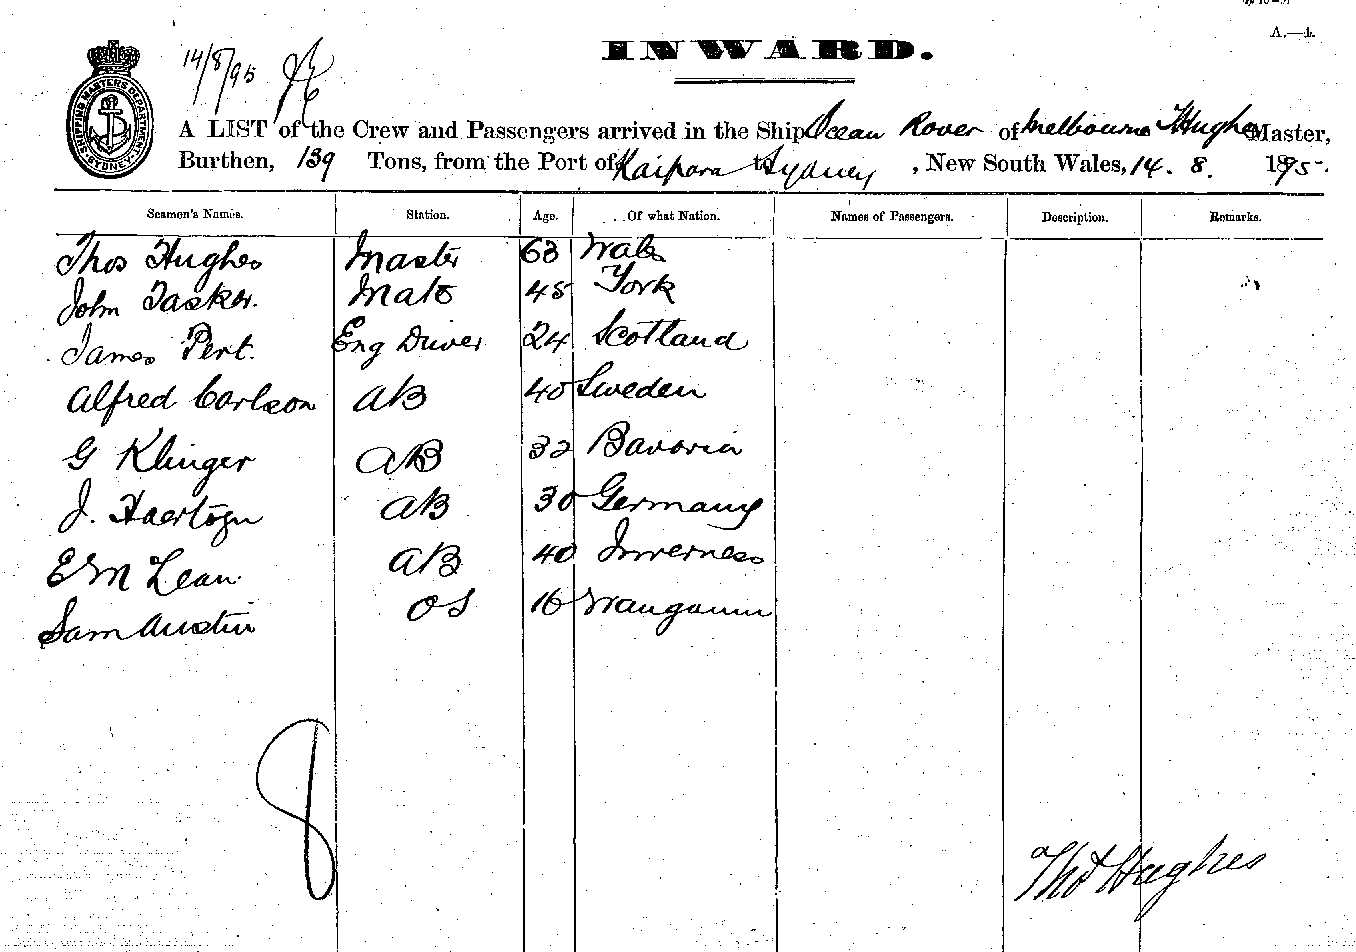 A.—1.
INWARD.
14/8/95
SHIPPING MASTERS DEPARTMENT SYDNEY
A LIST of the Crew and Passengers arrived in the Ship Ocean Rover of Melbourne THughes Master,
Burthen, 139 Tons, from the Port of Kaipara to Sydney, New South Wales, 14. 8. 1895.
Seamen's Names. Station. Age. Of what Nation. Names of Passengers. Description. Remarks.
Thos Hughes Master 63 Wales
John Tasker. Mate 45 York
James Pert. Eng Driver 24 Scotland
Alfred Carlson AB 40 Sweden
G Klinger AB 32 Bavaria
J. AB 30 Germany
E M Lean AB 40 Inverness
Sam Austin OS 16 Wanganui
8
Thos Hughes